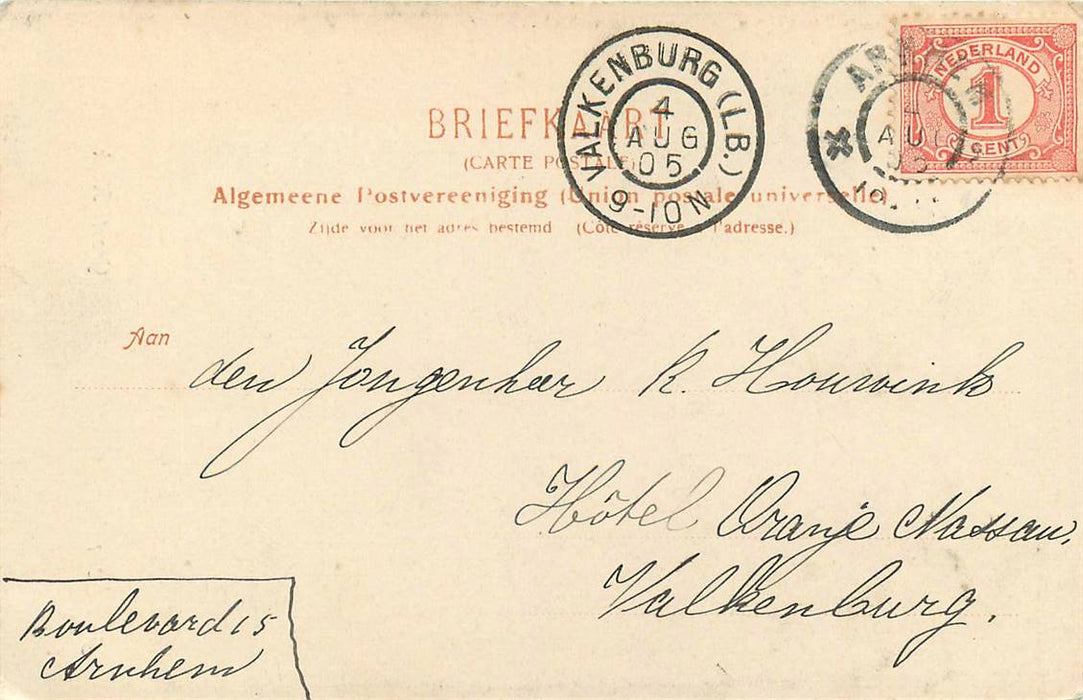 BRIEFKAART
(CARTE POSTALE)
Algemeene Postvereeniging (Union postale universelle)
Zijde voor het adres bestemd (Côté réservé à l'adresse.)
VALKENBURG (LB.)
4
AUG
05
9-10N
NEDERLAND
1
CENT
AUG
05
Aan
den Jongenheer K. Houwink
Hôtel Oranje Nassau,
Valkenburg.
Boulevard 15
Arnhem